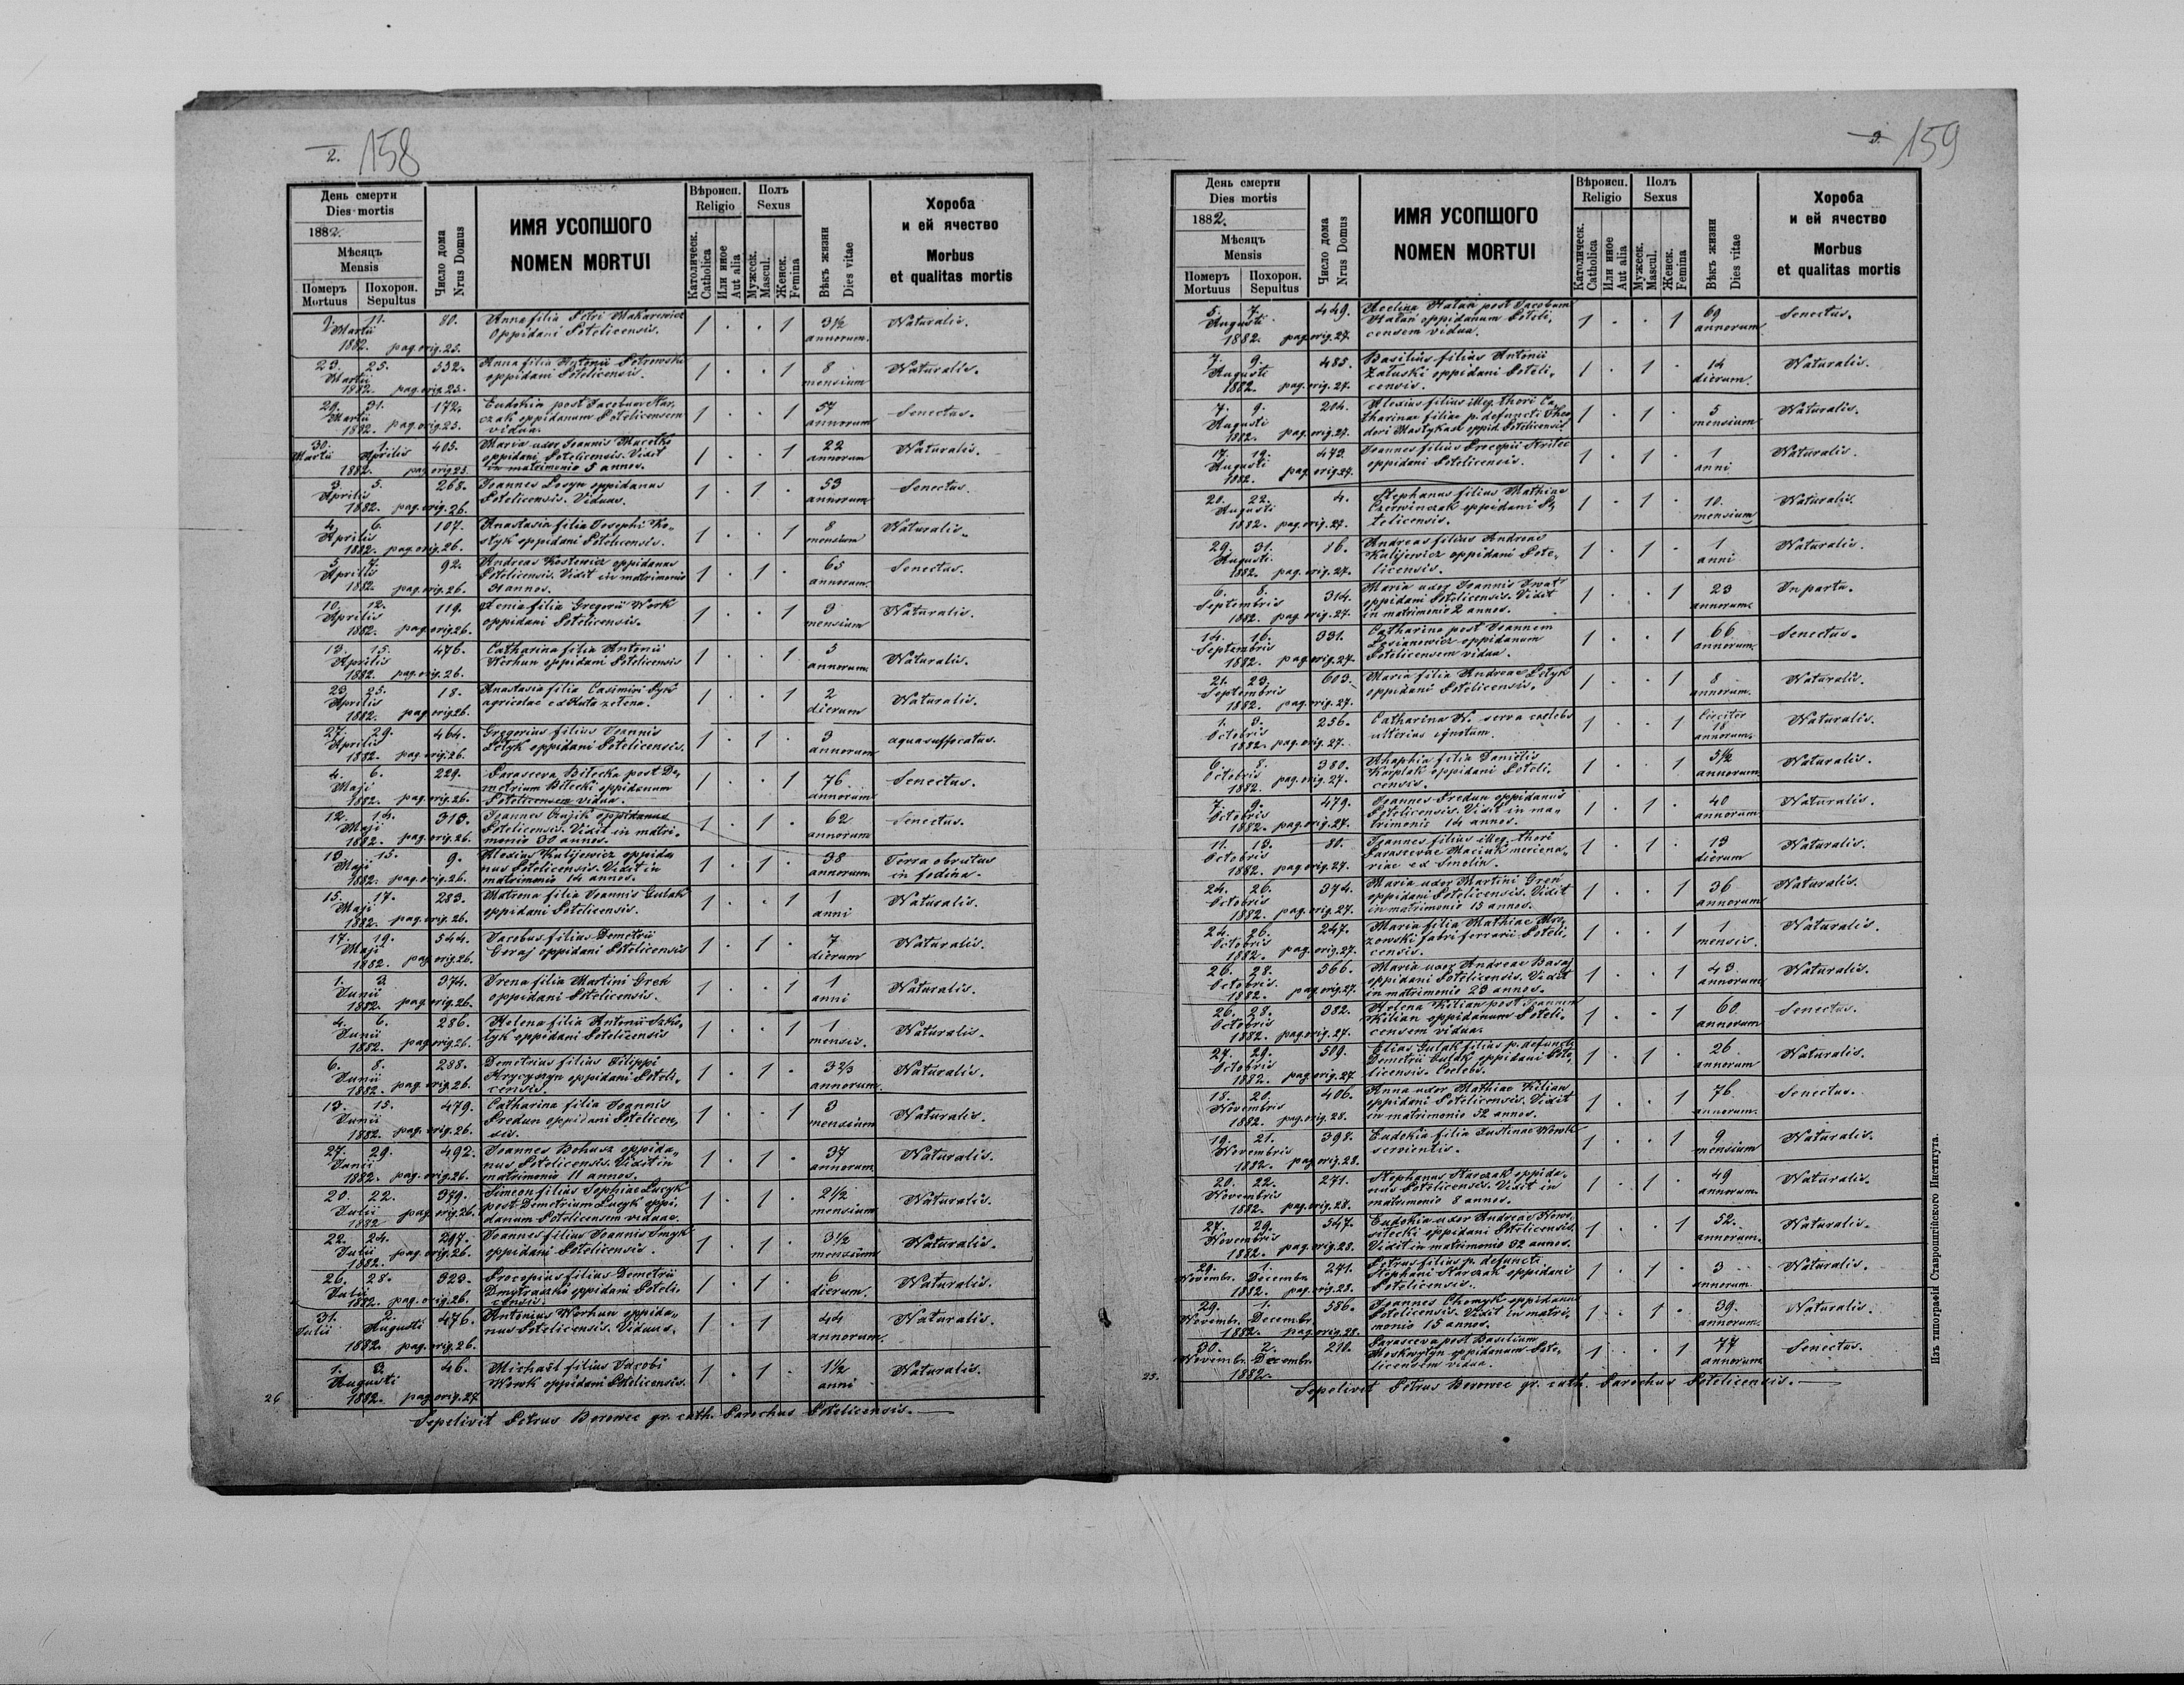 2. 158
День смерти
Dies mortis
1882.
Мѣсяцъ
Mensis
Померъ
Mortuus
Похорон.
Sepultus
Число дома
Nrus Domus
ИМЯ УСОПШОГО
NOMEN MORTUI
Вѣроисп.
Religio
Католическ.
Catholica
Или иное
Aut alia
Полъ
Sexus
Мужеск.
Mascul.
Женск.
Femina
Вѣкъ жизни
Dies vitae
Хороба
и ей ячество
Morbus
et qualitas mortis
9. 11. 80. Anna filia Petri Makarewicz 1 . . 1 3½ Naturalis.
Martii Oppidani Potelicensis. annorum.
1882. pag. orig. 25.
23. 25. 532. Anna filia Antonii Petrowski 1 . . 1 8 Naturalis.
Martii oppidani Potelicensis. mensium
1882. pag. orig. 25.
29. 31. 172. Eudokia post Jacobum Kar„ 1 . . 1 57 Senectus.
Martii czak oppidanum Potelicensem annorum
1882. pag. orig. 25. vidua.
30. 1. 405. Maria uxor Joannis Macelko 1 . . 1 22 Naturalis.
Martii Aprilis oppidani Potelicensis. Vidit annorum
1882. pag. orig. 25. in matrimonio 5 annos.
3. 5. 268. Joannes Losyn oppidanus 1 . 1 . 53 Senectus.
Aprilis Potelicensis. Viduus. annorum
1882. pag. orig. 26.
4. 6. 107. Anastasia filia Josephi Ko„ 1 . . 1 8 Naturalis.
Aprilis styk oppidani Potelicensis. mensium
1882. pag. orig. 26.
5. 7. 92. Andreas Kostewicz oppidanus 1 . 1 . 65 Senectus.
Aprilis Potelicensis. Vidit in matrimonio annorum.
1882. pag. orig. 26. 31 annos.
10. 12. 119. Xenia filia Gregorii Work 1 . . 1 3 Naturalis.
Aprilis oppidani Potelicensis. mensium
1882. pag. orig. 26.
13. 15. 476. Catharina filia Antonii 1 . . 1 5 Naturalis.
Aprilis Werhun oppidani Potelicensis annorum
1882. pag. orig. 26.
23. 25. 18. Anastasia filia Casimiri Pyk 1 . . 1 2 Naturalis.
Aprilis agricolae ex Huta zelena. dierum
1882. pag. orig. 26.
27. 29. 464. Gregorius filius Joannis 1 . 1 . 3 aqua suffocatus.
Aprilis Petyk oppidani Potelicensis. annorum
1882. pag. orig. 26.
4. 6. 229. Parasceva Bilecka post De„ 1 . . 1 76 Senectus.
Maji metrium Bilecki oppidanum annorum
1882. pag. orig. 26. Potelicensem vidua.
12. 14. 313. Joannes oppidanus 1 . 1 . 62 Senectus.
Maji Potelicensis. Vidit in matri„ annorum
1882. pag. orig. 26. monio 30 annos.
13. 15. 9. Alexius Kulijewicz oppida„ 1 . 1 . 38 Terra obrutus
Maji nus Potelicensis. Vidit in annorum in fodina.
1882. pag. orig. 26. matrimonio 14 annos.
15. 17. 283. Matrona filia Joannis Gulak 1 . . 1 1 Naturalis.
Maji oppidani Potelicensis. anni
1882. pag. orig. 26.
17. 19. 544. Jacobus filius Demetrii 1 . 1 . 7 Naturalis.
Maji Geraj oppidani Potelicensis dierum
1882. pag. orig. 26.
1. 3. 374. Irena filia Martini Greń 1 . . 1 1 Naturalis.
Junii oppidani Potelicensis. anni
1882. pag. orig. 26.
4. 6. 286. Helena filia Antonii Szko„ 1 . . 1 1 Naturalis.
Junii lyk oppidani Potelicensis mensis.
1882. pag. orig. 26.
6. 8. 288. Demetrius filius Filippi 1 . 1 . 3⅔ Naturalis.
Junii Hrycyszyn oppidani Poteli„ annorum.
1882. pag. orig. 26. censis.
13. 15. 479. Catharina filia Joannis 1 . . 1 3 Naturalis.
Junii Predun oppidani Potelicen„ mensium
1882. pag. orig. 26. sis.
27. 29. 492. Joannes Bohusz oppida„ 1 . 1 . 37 Naturalis.
Junii nus Potelicensis. Vidit in annorum.
1882. pag. orig. 26. matrimonio 11 annos.
20. 22. 379. Simeon filius Sophiae Lucyk 1 . 1 . 2½ Naturalis.
Julii post Demetrium Lucyk oppi„ mensium
1882 pag. orig. 26. danum Potelicensem viduae.
22. 24. 297. Joannes filius Joannis Smyk 1 . 1 . 3½ Naturalis.
Julii oppidani Potelicensis. mensium
1882. pag. orig. 26.
26. 28. 323. Procopius filius Demetrii 1 . 1 . 6 Naturalis.
Julii Dmytraszko oppidani Poteli„ dierum.
1882. pag. orig. 26. censis.
31. 2. 476. Antonius Werhun oppida„ 1 . 1 44 Naturalis.
Julii Augusti nus Potelicensis. Viduus. annorum.
1882. pag. orig. 26.
1. 3. 46. Michaël filius Jacobi 1 . 1 . 1½ Naturalis.
Augusti Wowk oppidani Potelicensis. anni
26 1882. pag. orig. 27
Sepelivit Petrus Borowec gr. cath. Parochus Potelicensis.
3. 159
День смерти
Dies mortis
1882.
Мѣсяцъ
Mensis
Померъ
Mortuus
Похорон.
Sepultus
Число дома
Nrus Domus
ИМЯ УСОПШОГО
NOMEN MORTUI
Вѣроисп.
Religio
Католическ.
Catholica
Или иное
Aut alia
Полъ
Sexus
Мужеск.
Mascul.
Женск.
Femina
Вѣкъ жизни
Dies vitae
Хороба
и ей ячество
Morbus
et qualitas mortis
5. 7. 449. Hałań post Jacobum 1 . . 1 69 Senectus.
Augusti Hałań oppidanum Poteli„ annorum
1882. pag. orig. 27. censem vidua.
7. 9. 485. Basilius filius Antonii 1 . 1 . 14 Naturalis.
Augusti Załuski oppidani Poteli„ dierum.
1882 pag. orig. 27. censis.
7. 9. 204. Alexius filius illeg. thori Ca„ 1 . 1 . 5 Naturalis.
Augusti tharinae filiae p. defuncti Theo„ mensium
1882. pag. orig. 27. dori Mastykasz oppid. Potelicensis
17. 19. 472 Joannes filius Procopii Hritec 1 . 1 . 1 Naturalis.
Augusti oppidani Potelicensis. anni
1882. pag. orig. 27.
20. 22. 4. Stephanus filius Mathiae 1 . 1 . 10. Naturalis.
Augusti Czerwinczak oppidani Po„ mensium
1882. pag. orig. 27. telicensis.
29. 31. 86. Andreas filius Andreae 1 . 1 . 1 Naturalis.
Augusti Kulijewicz oppidani Pote„ anni
1882. pag. orig. 27. licensis.
6. 8. 314. Maria uxor Joannis 1 . . 1 23 In partu.
Septembris oppidani Potelicensis. Vidit annorum.
1882. pag. orig. 27. in matrimonio 2 annos.
14. 16. 331. Catharina post Joannem 1 . . 1 66 Senectus.
Septembris Lesianewicz oppidanum annorum.
1882. pag. orig. 27. Potelicensem vidua.
21. 23. 603. Maria filia Andreae Petyk 1 . . 1 8 Naturalis.
Septembris oppidani Potelicensis. annorum.
1882. pag. orig. 27.
1. 3. 256. Catharina N. serva coelebs 1 . . 1 Circiter 18 Naturalis.
Octobris ulterius ignotum. annorum.
1882. pag. orig. 27.
6. 8. 380. Ahaphia filia Danielis 1 . . 1 5½ Naturalis.
Octobris Karplak oppidani Poteli„ annorum
1882. pag. orig. 27. censis.
7. 9. 479. Joannes Predun oppidanus 1 . 1 . 40 Naturalis.
Octobris Potelicensis. Vidit in ma„ annorum.
1882. pag. orig. 27. trimonio 14 annos.
11. 13. 80. Joannes filius illeg. thori 1 . 1 . 13 Naturalis.
Octobris Parascevae Maciuk mercena„ dierum
1882. pag. orig. 27. riae ex Smolin.
24. 26. 374. Maria uxor Martini Greń 1 . . 1 36 Naturalis.
Octobris oppidani Potelicensis. Vidit annorum
1882. pag. orig. 27. in matrimonio 15 annos.
24. 26. 247. Maria filia Mathiae Mro„ 1 . . 1 1 Naturalis.
Octobris zowski fabri ferrarii Poteli„ mensis.
1882. pag. orig. 27. censis.
26. 28. 566. Maria uxor Andreae Basaj 1 . . 1 43 Naturalis.
Octobris oppidani Potelicensis. Vidit annorum
1882. pag. orig. 27. in matrimonio 23 annos.
26. 28. 382. Helena Kilian post Joannem 1 . . 1 60 Senectus.
Octobris Kilian oppidanum Poteli„ annorum
1882. pag. orig. 27. censem vidua.
27. 29. 509. Elias Gulak filius p. defuncti 1 . 1 . 26 Naturalis.
Octobris Demetrii Gulak oppidani Pote„ annorum
1882. pag. orig. 27 licensis. Coelebs.
18. 20. 406. Anna uxor Mathiae Kilian 1 . . 1 76 Senectus.
Novembris oppidani Potelicensis. Vidit annorum.
1882. pag. orig. 28. in matrimonio 52 annos.
19. 21. 398. Eudokia filia Justinae Wowk 1 . . 1 9 Naturalis.
Novembris servientis. mensium
1882. pag. orig. 28.
20. 22. 271. Stephanus Karczak oppida„ 1 . 1 . 49 Naturalis.
Novembris nus Potelicensis. Vidit in annorum.
1882. pag. orig. 28. matrimonio 8 annos.
27. 29. 547. Eudokia uxor Andreae Nowo„ 1 . . 1 52. Naturalis.
Novembris silecki oppidani Potelicensis. annorum.
1882. pag. orig. 28. Vidit in matrimonio 32 annos.
29. 1. 271. Petrus filius p. defuncti 1 . 1 . 3 Naturalis.
Novembr. Decembr. Stephani Karczak oppidani annorum
1882. pag. orig. 28. Potelicensis.
29. 1. 586. Joannes Chomyk oppidanus 1 . 1 . 39. Naturalis.
Novembr. Decembr. Potelicensis. Vidit in matri„ annorum.
1882. pag. orig. 28. monio 15 annos.
30. 2. 210. Parasceva post Basilium 1 . . 1 77 Senectus.
Novembr. Decembr. Moskwytyn oppidanum Pote„ annorum
25. 1882. licensem vidua.
Sepelivit Petrus Borowec gr. cath. Parochus Potelicensis.
Изъ типографіи Ставропигійского Института.